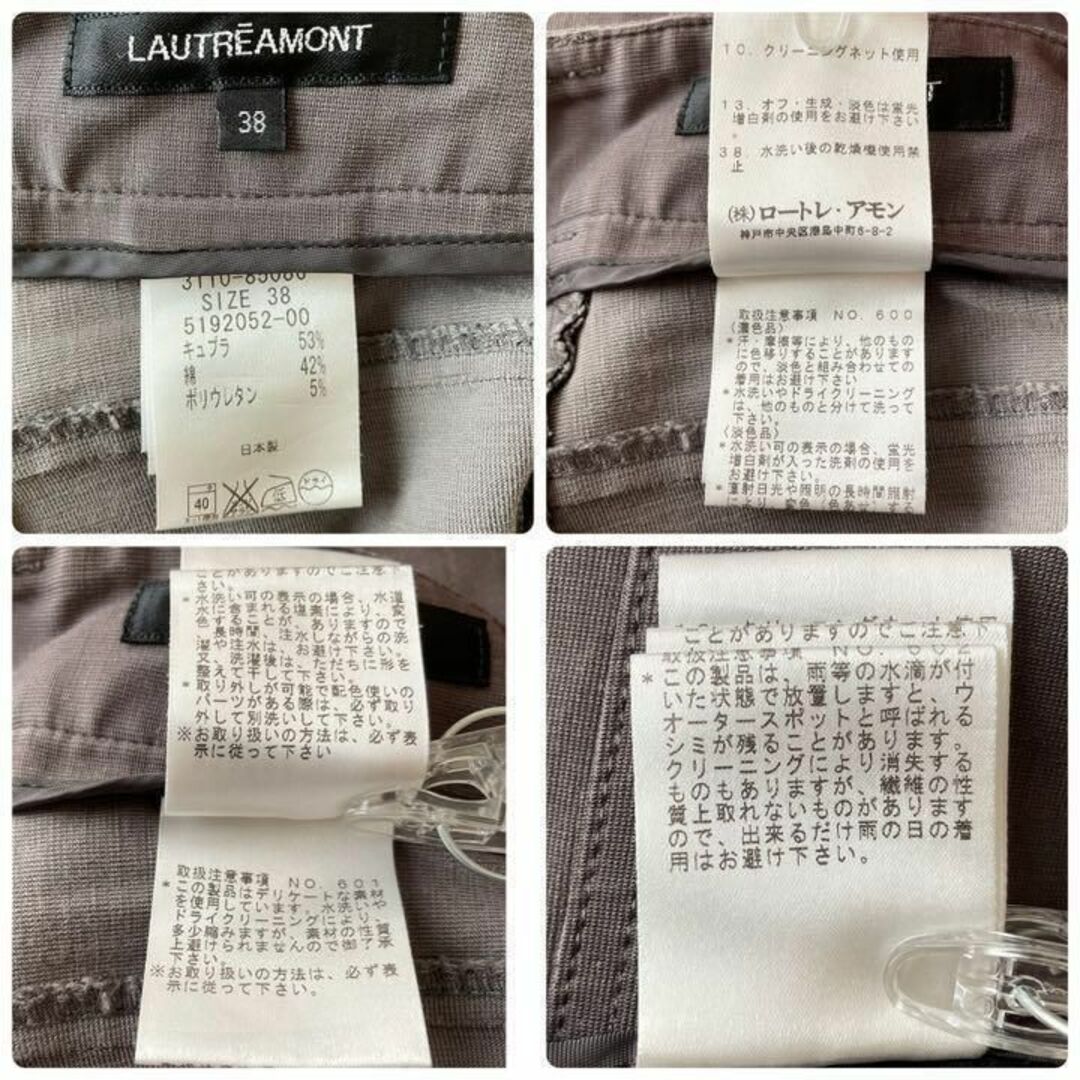 LAUTRĒAMONT
38
3110-85080
SIZE 38
5192052-00
キュプラ 53%
綿 42%
ポリウレタン 5%
日本製
40
低
ドライ
10. クリーニングネット使用
13. オフ・生成・淡色は蛍光
増白剤の使用をお避け下さい
。
38. 水洗い後の乾燥機使用禁
止
(株)ロートレ・アモン
神戸市中央区港島中町6-8-2
T
取扱注意事項 NO.600
(濃色品)
*汗・摩擦等により、他のもの
に色移りすることがあります
ので、淡色と組み合わせての
着用はお避け下さい
*水洗いやドライクリーニング
は、他のものと分けて洗って
下さい。
(淡色品)
*水洗い可の表示の場合、蛍光
増白剤が入った洗剤の使用を
お避け下さい。
*直射日光や照明の長時間照射
により、変色(色あせ)する
ことがありますのでご注意下
さい。
*水洗い可の表示の場合、水道
水に含まれる塩素により、変
色することが、あります。の
で長時間、注水しながらの洗
濯や注水は、お避け下さい。
又、洗濯後は、ただちに形を
整えて干して下さい。
*取り外しが可能で配色使いの
パーツがある際は、必ず取り
外して別洗いして下さい。
※お取り扱いの方法は、必ず表
示に従って下さい
取扱注意事項 NO.601
*この製品はデリケートな素材
を使用しています。水洗いや
ドライクリーニングにより、
多少縮みますが、素材の性質
上避けられませんので御了承
下さい。
※お取り扱いの方法は、必ず表
示に従って下さい。
ことがありますのでご注意下
取扱注意事項 NO.
*この製品は、雨等の水滴が付
いた状態で放置しますと、ウ
オータースポットと呼ばれる
シミが残ることがあります。
クリーニングにより消失する
ものもありますが、繊維の性
質上取れないものがあります
ので、出来るだけ雨の日の着
用はお避け下さい。